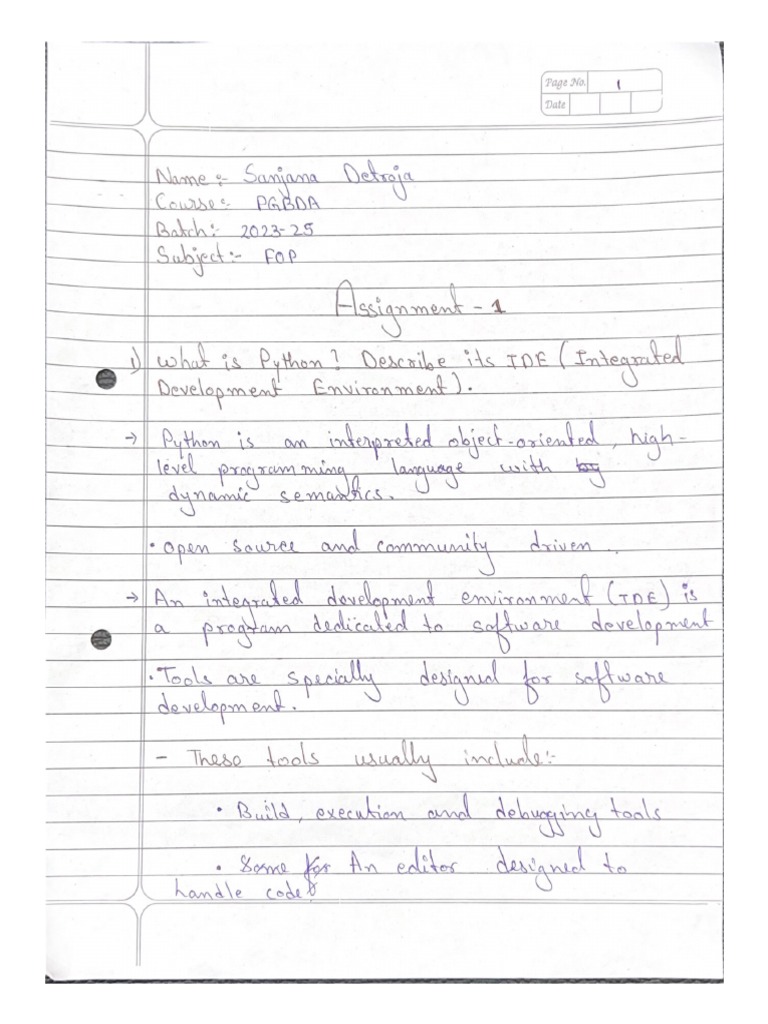 Page No. 1
Date
Name :- Sanjana Detroja
Course:- PGBDA
Batch:- 2023-25
Subject:- FOP
Assignment - 1
1) What is Python? Describe its IDE (Integrated
Development Environment).
→ Python is an interpreted object-oriented, high-
level programming language with
dynamic semantics.
• open source and community driven.
→ An integrated development environment (IDE) is
a program dedicated to software development
• Tools are specially designed for software
development.
- These tools usually include:-
• Build, execution and debugging tools
• Some for An editor designed to
handle code